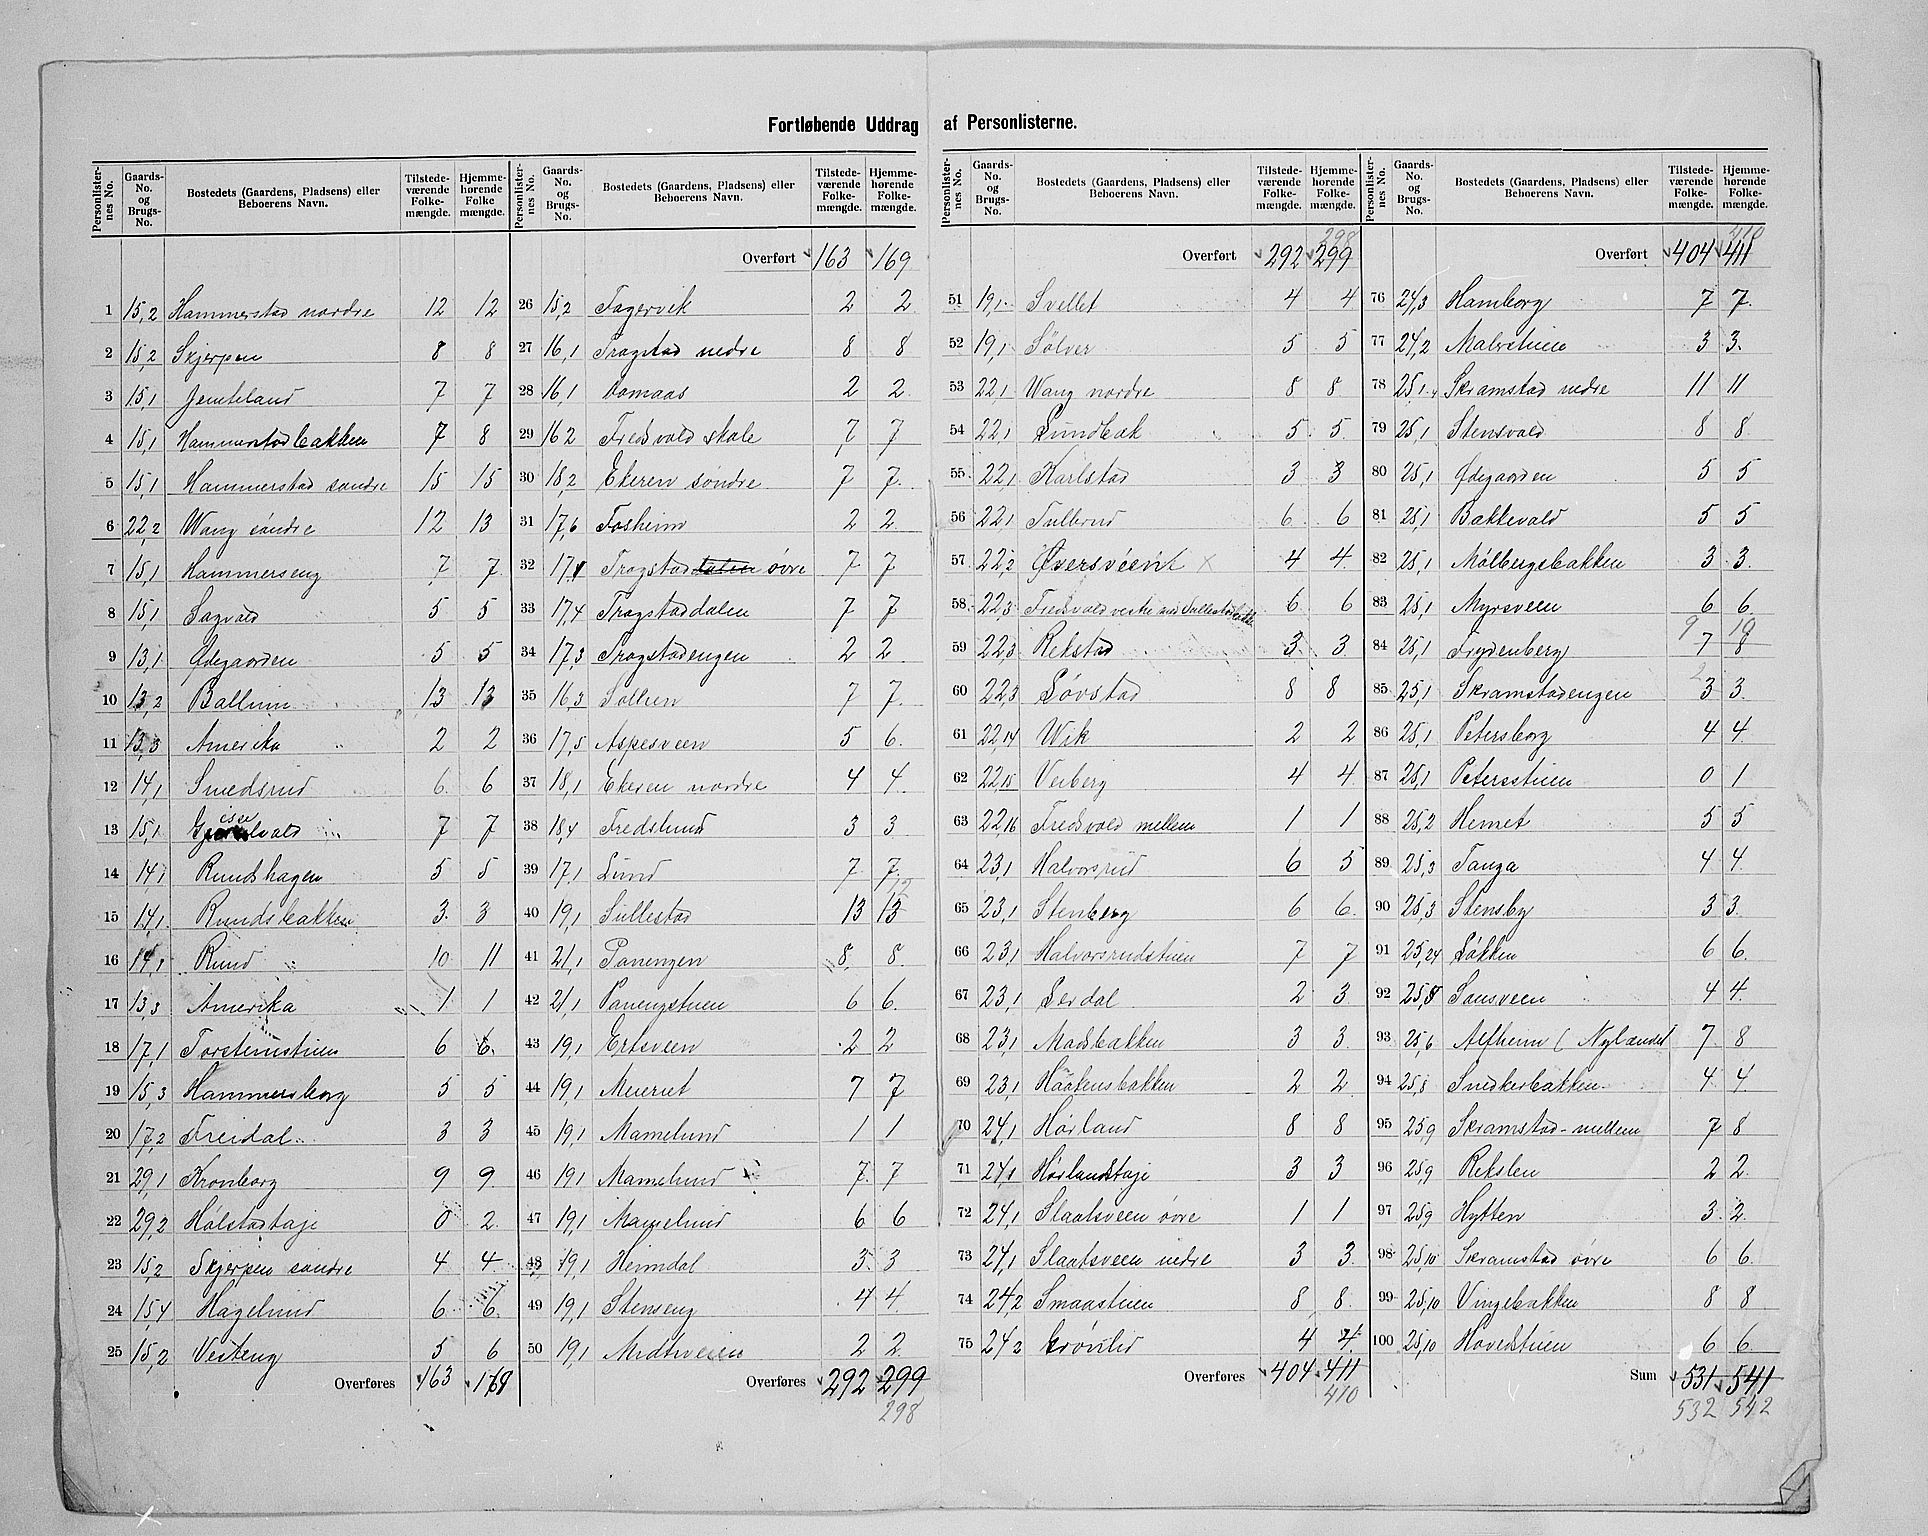 Fortløbende Uddrag af Personlisterne.
Personlister-nes No. | Gaards-No. og Brugs-No. | Bostedets (Gaardens, Pladsens) eller Beboerens Navn. | Tilstede-værende Folke-mængde. | Hjemme-hørende Folke mængde.
1 15,2 Hammerstad nordre 12 12
2 15,2 Skjerpen 8 8
3 15,1 Jemteland 7 7
4 15,1 Hammerstadbakken 7 8
5 15,1 Hammerstad søndre 15 15
6 22,2 Wang søndre 12 13
7 15,1 Hammerseng 7 7
8 15,1 Sagvold 5 5
9 13,1 Ødegaarden 5 5
10 13,2 Ballum 13 13
11 13,3 Amerika 2 2
12 14,1 Smedsrud 6 6
13 15,1 7 7
14 14,1 Rundshagen 5 5
15 14,1 Rundsbakken 3 3
16 14,1 Rund 10 11
17 13,3 Amerika 1 1
18 17,1 Torstenstuen 6 6
19 15,3 Hammersborg 5 5
20 17,2 Freidal 3 3
21 29,1 Kronborg 9 9
22 29,2 Holstadtaje 0 2
23 15,2 Skjerpen søndre 4 4
24 15,4 Hagelund 6 6
25 15,2 Vesteng 5 6
Overføres 163 169
Personlister-nes No. | Gaards-No. og Brugs-No. | Bostedets (Gaardens, Pladsens) eller Beboerens Navn. | Tilstede-værende Folke-mængde. | Hjemme-hørende Folke-mængde.
Overført 163 169
26 15,2 Fagervik 2 2
27 16,1 Fragstad nedre 8 8
28 16,1 Domaas 2 2
29 16 2 Fredsvold skole 7 7
30 18,2 Ekeren søndre 7 7
31 17,6 Fosheim 2 2
32 17,1 Fragstaddalen øvre 7 7
33 17,4 Fragstaddalen 7 7
34 17,3 Fragstadengen 2 2
35 16,3 Solhen 7 7
36 17,5 Aspesveen 5 6
37 18,1 Ekeren nordre 4 4
38 18,4 Fredslund 3 3
39 17,1 Lund 7 7
40 19,1 Sullestad 13 13 12
41 21,1 Panengen 8 8
42 21,1 Panengstuen 6 6
43 19,1 Ertsveen 2 2
44 19,1 Meieriet 7 7
45 19,1 Mamelund 1 1
46 19,1 Mamelund 7 7
47 19,1 Mamelund 6 6
48 19,1 Heimdal 3 3
49 19,1 Stenseng 4 4
50 19,1 Midtveien 2 2
Overføres 292 299
298
Personlister-nes No. | Gaards-No. og Brugs-No. | Bostedets (Gaardens, Pladsens) eller Beboerens Navn. | Tilstede-værende Folke-mængde. | Hjemme-hørende Folke-mængde.
298
Overført 292 299
51 19,1 Svellet 4 4
52 19,1 Sølver 5 5
53 22,1 Wang nordre 8 8
54 22,1 Lundbæk 5 5
55 22,1 Karlstad 3 3
56 22,1 Tullerud 6 6
57 22,2 Øversveevit × 4 4
58 22,3 Fredsvold vestre med Sullestadbakk 6 6
59 22,3 Rekstad 3 3
60 22,3 Løvstad 8 8
61 22,14 Wik 2 2
62 22,15 Veiberg 4 4
63 22,16 Fredsvold mellem 1 1
64 23,1 Halvorsrud 6 5
65 23,1 Stenberg 6 6
66 23,1 Halvorsrudstuen 7 7
67 23,1 Lerdal 2 3
68 23,1 Madsbakken 3 3
69 23,1 Haakensbakken 2 2
70 24,1 Horland 8 8
71 24,1 Horlandstaje 3 3
72 24,1 Slaatsveen øvre 1 1
73 24,1 Slaatsveen nedre 3 3
74 24,2 Smaastuen 8 8
75 24 2 Grønlid 4 4
Overføres 404 411
410
Personlister-nes No. | Gaards-No. og Brugs-No. | Bostedets (Gaardens, Pladsens) eller Beboerens Navn. | Tilstede-værende Folke-mængde. | Hjemme-hørende Folke-mængde.
410
Overført 404 411
76 24,3 Hamborg 7 7
77 24,2 Malvstuen 3 3
78 25,1 Skramstad nedre 11 11
79 25,1 Stensvold 8 8
80 25,1 Ødegaarden 5 5
81 25,1 Bakkevold 5 5
82 25,1 Molbergsbakken 3 3
83 25,1 Myrsveen 6 6
84 25,1 Frydenberg 9 7 10 8
85 25,1 Skramstadengen 2 3 3
86 25,1 Petersborg 4 4
87 25,1 Petersstuen 0 1
88 25,2 Hemet 5 5
89 25,3 Tanga 4 4
90 25,3 Stensby 3 3
91 25,24 Løkken 6 6
92 25,8 Sonsveen 4 4
93 25,6 Alfheim ( Nylændet 7 8
94 25,8 Snekkerbakken 4 4
95 25,9 Skramstad - mellem 7 8
96 25,9 Rekslen 2 2
97 25,9 Hytten 3 2
98 25,10 Skramstad øvre 6 6
99 25,10 Vingebakken 8 8
100 25,10 Hovedstuen 6 6
Sum 531 541
532 542